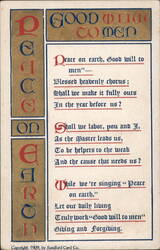 PEACE
ON
EARTH
GOOD WILL
TO MEN
Peace on earth, Good will to
men"—
Blessed heavenly chorus;
Shall we make it fully ours
In the year before us?
Shall we labor, you and I,
As the Master leads us,
To be helpers to the week
And the cause that needs us?
While we're singing "Peace
on earth,"
Let our daily living
Truly work "Good will to men"
Giving and Forgiving.
Copyright, 1909, by Sandford Card Co.